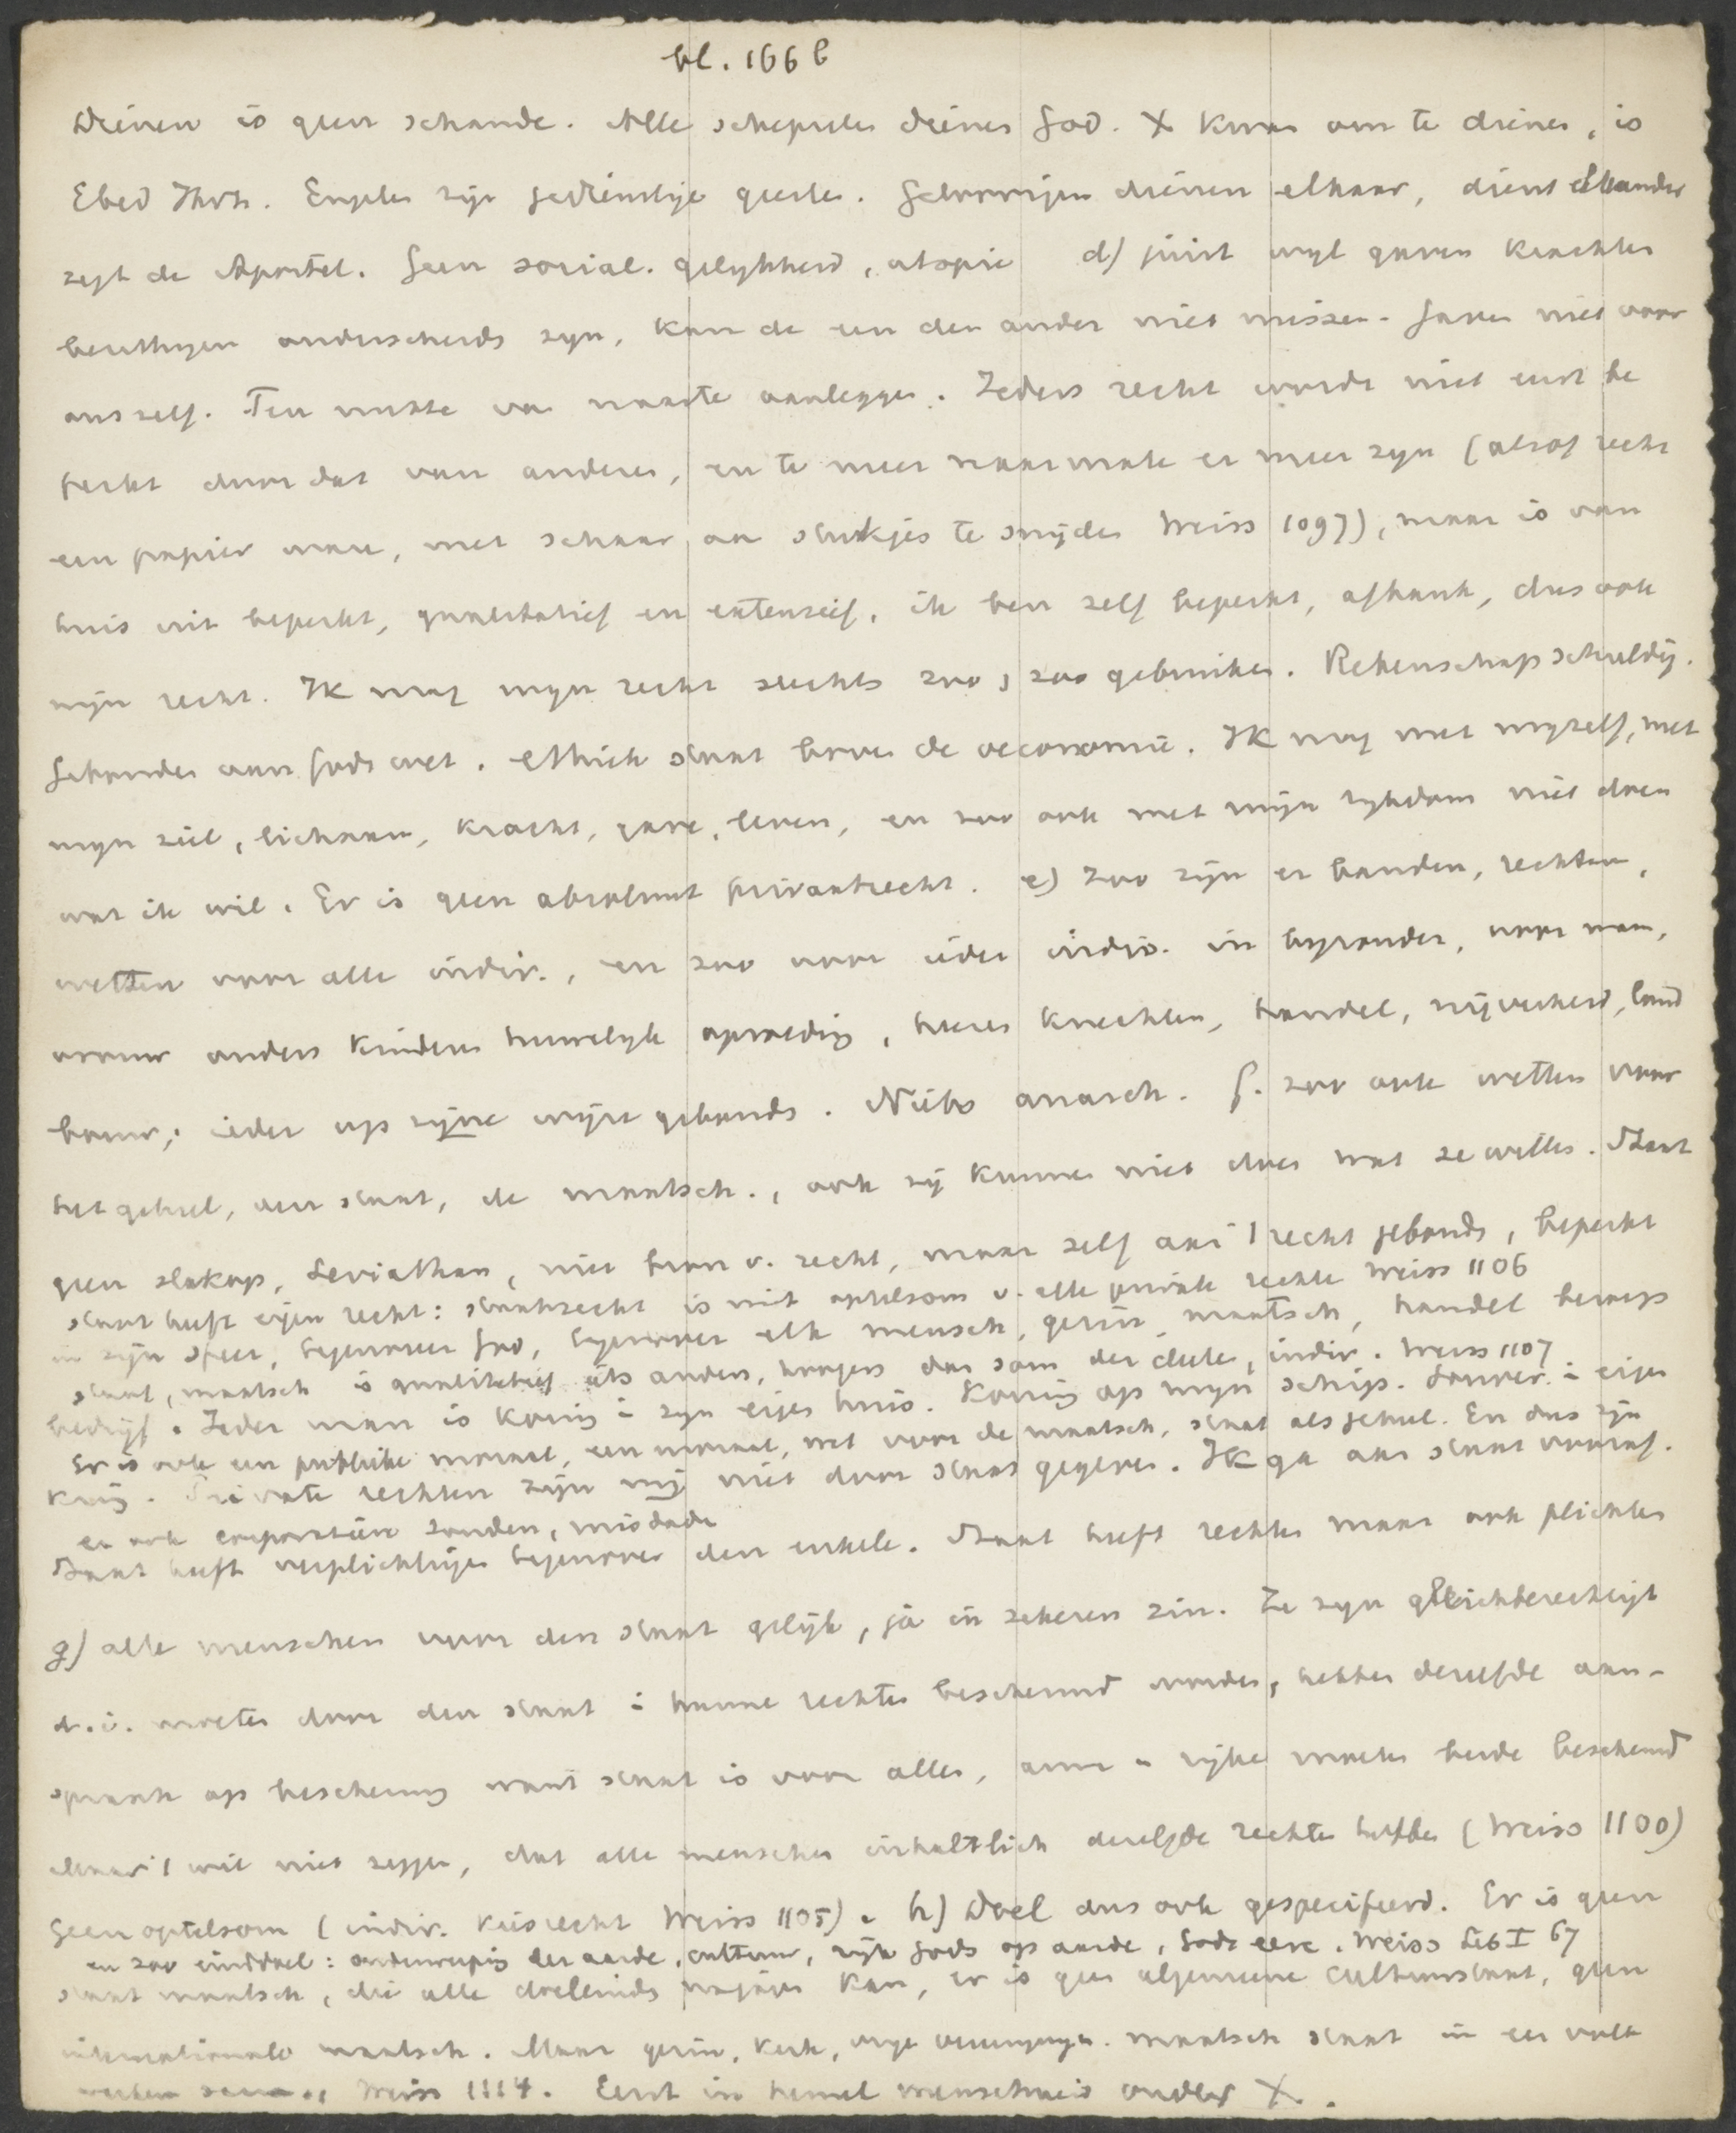 bl. 166 b
Dienen is geen schande. Alle schepselen dienen God. X kwam om te dienen, is
Ebed Jhvh. Engelen zijn gedienstige geesten. Geloovigen dienen elkaar, dient elkander
zegt de Apostel. Geen social. gelijkheid, utopie d) juist wijl gaven krachten
 onderscheiden zijn, kan de een den ander niet missen. Gaven niet voor
ons zelf. Ten nutte van naaste aanleggen. Ieders recht wordt niet eerst be
perkt door dat van anderen, en te meer naarmate er meer zijn (alsof recht
een papier ware, met schaar aan stukjes te snijden Weiss 1097), maar is van
huis uit beperkt, qualitatief en extensief. ik ben zelf beperkt, afhank, dus ook
mijn recht. Ik mag mijn recht slechts zoo, zoo gebruiken. Rekenschap schuldig.
Gebonden aan Gods wet. Ethiek staat boven de oeconomie. Ik mag met mijzelf, met
mijn ziel, lichaam, kracht, gave, leven, en zoo ook met mijn rijkdom niet doen
wat ik wil. Er is geen absoluut privaatrecht. e) Zoo zijn er banden, rechten,
wetten voor alle indiv., en zoo voor ieder indiv. in bijzonder, voor man,
vrouw ouders kinderen huwelijk opvoeding, heeren knechten, handel, nijverheid, land
bouw; ieder op zijne wijze gebonden. Niets anarch. f. zoo ook wetten voor
het geheel, den staat, de maatsch., ook zij kunnen niet doen wat ze willen. Staat
geen slokop, Leviathan, niet bron v. recht, maar zelf aan 't recht gebonden, beperkt
staat heeft eigen recht: staatsrecht is niet optelsom v. alle private rechten Weiss 1106
in zijn sfeer, tegenover God, tegenover elk mensch, gezin, maatsch, handel beroep
staat, maatsch is qualitatief iets anders, hoogers dan som der deelen, indiv. Weiss 1107
bedrijf. Ieder man is koning i zijn eigen huis. Koning op mijn schip. Souver. i eigen
Er is ook een publieke moraal, een moraal, wet voor de maatsch, staat als geheel. En dus zijn
kring. Private rechten zijn mij niet door staat gegeven. Ik ga aan staat vooraf.
er ook corporatieve zonden, misdaden
Staat heeft verplichtingen tegenover den enkele. Staat heeft rechten maar ook plichten
g) alle menschen voor den staat gelijk, ja in zekeren zin. Ze zijn gleichberechtigt
d.i. moeten door den staat i hunne rechten beschermd worden, hebben dezelfde aan-
spraak op bescherming want staat is voor allen, arme en rijke moeten beide beschermd
Maar 't wil niet zeggen, dat alle menschen inhaltlich dezelfde rechten hebben (Weiss 1100)
Geen optelsom (indiv. kiesrecht Weiss 1105). h) Doel dus ook gespecifieerd. Er is geen
en zoo einddoel: onderwerping der aarde, cultuur, rijk Gods op aarde, Gods eere. Weiss Lib I 67
staat maatsch, die alle doeleinden najagen kan, er is geen algemeene cultuurstaat, geen
internationale maatsch. Maar gezin, kerk, vrije vereenigingen. maatsch staat in een volk
werken samen, Weiss 1114. Eerst in hemel menschheid onder X.